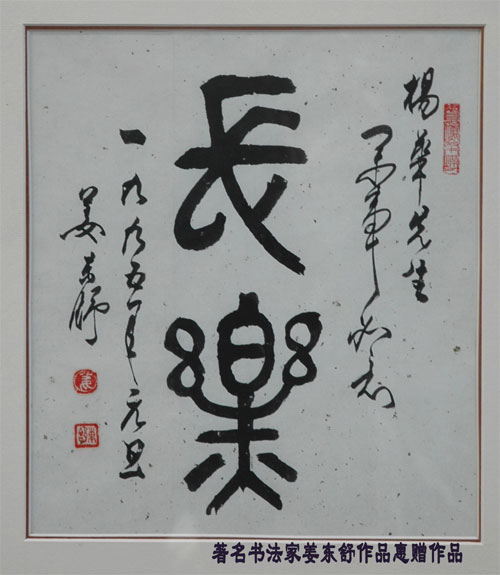 楊華先生
萬事如意
長樂
一九九五年元旦
姜東舒
著名书法家姜东舒作品惠赠作品